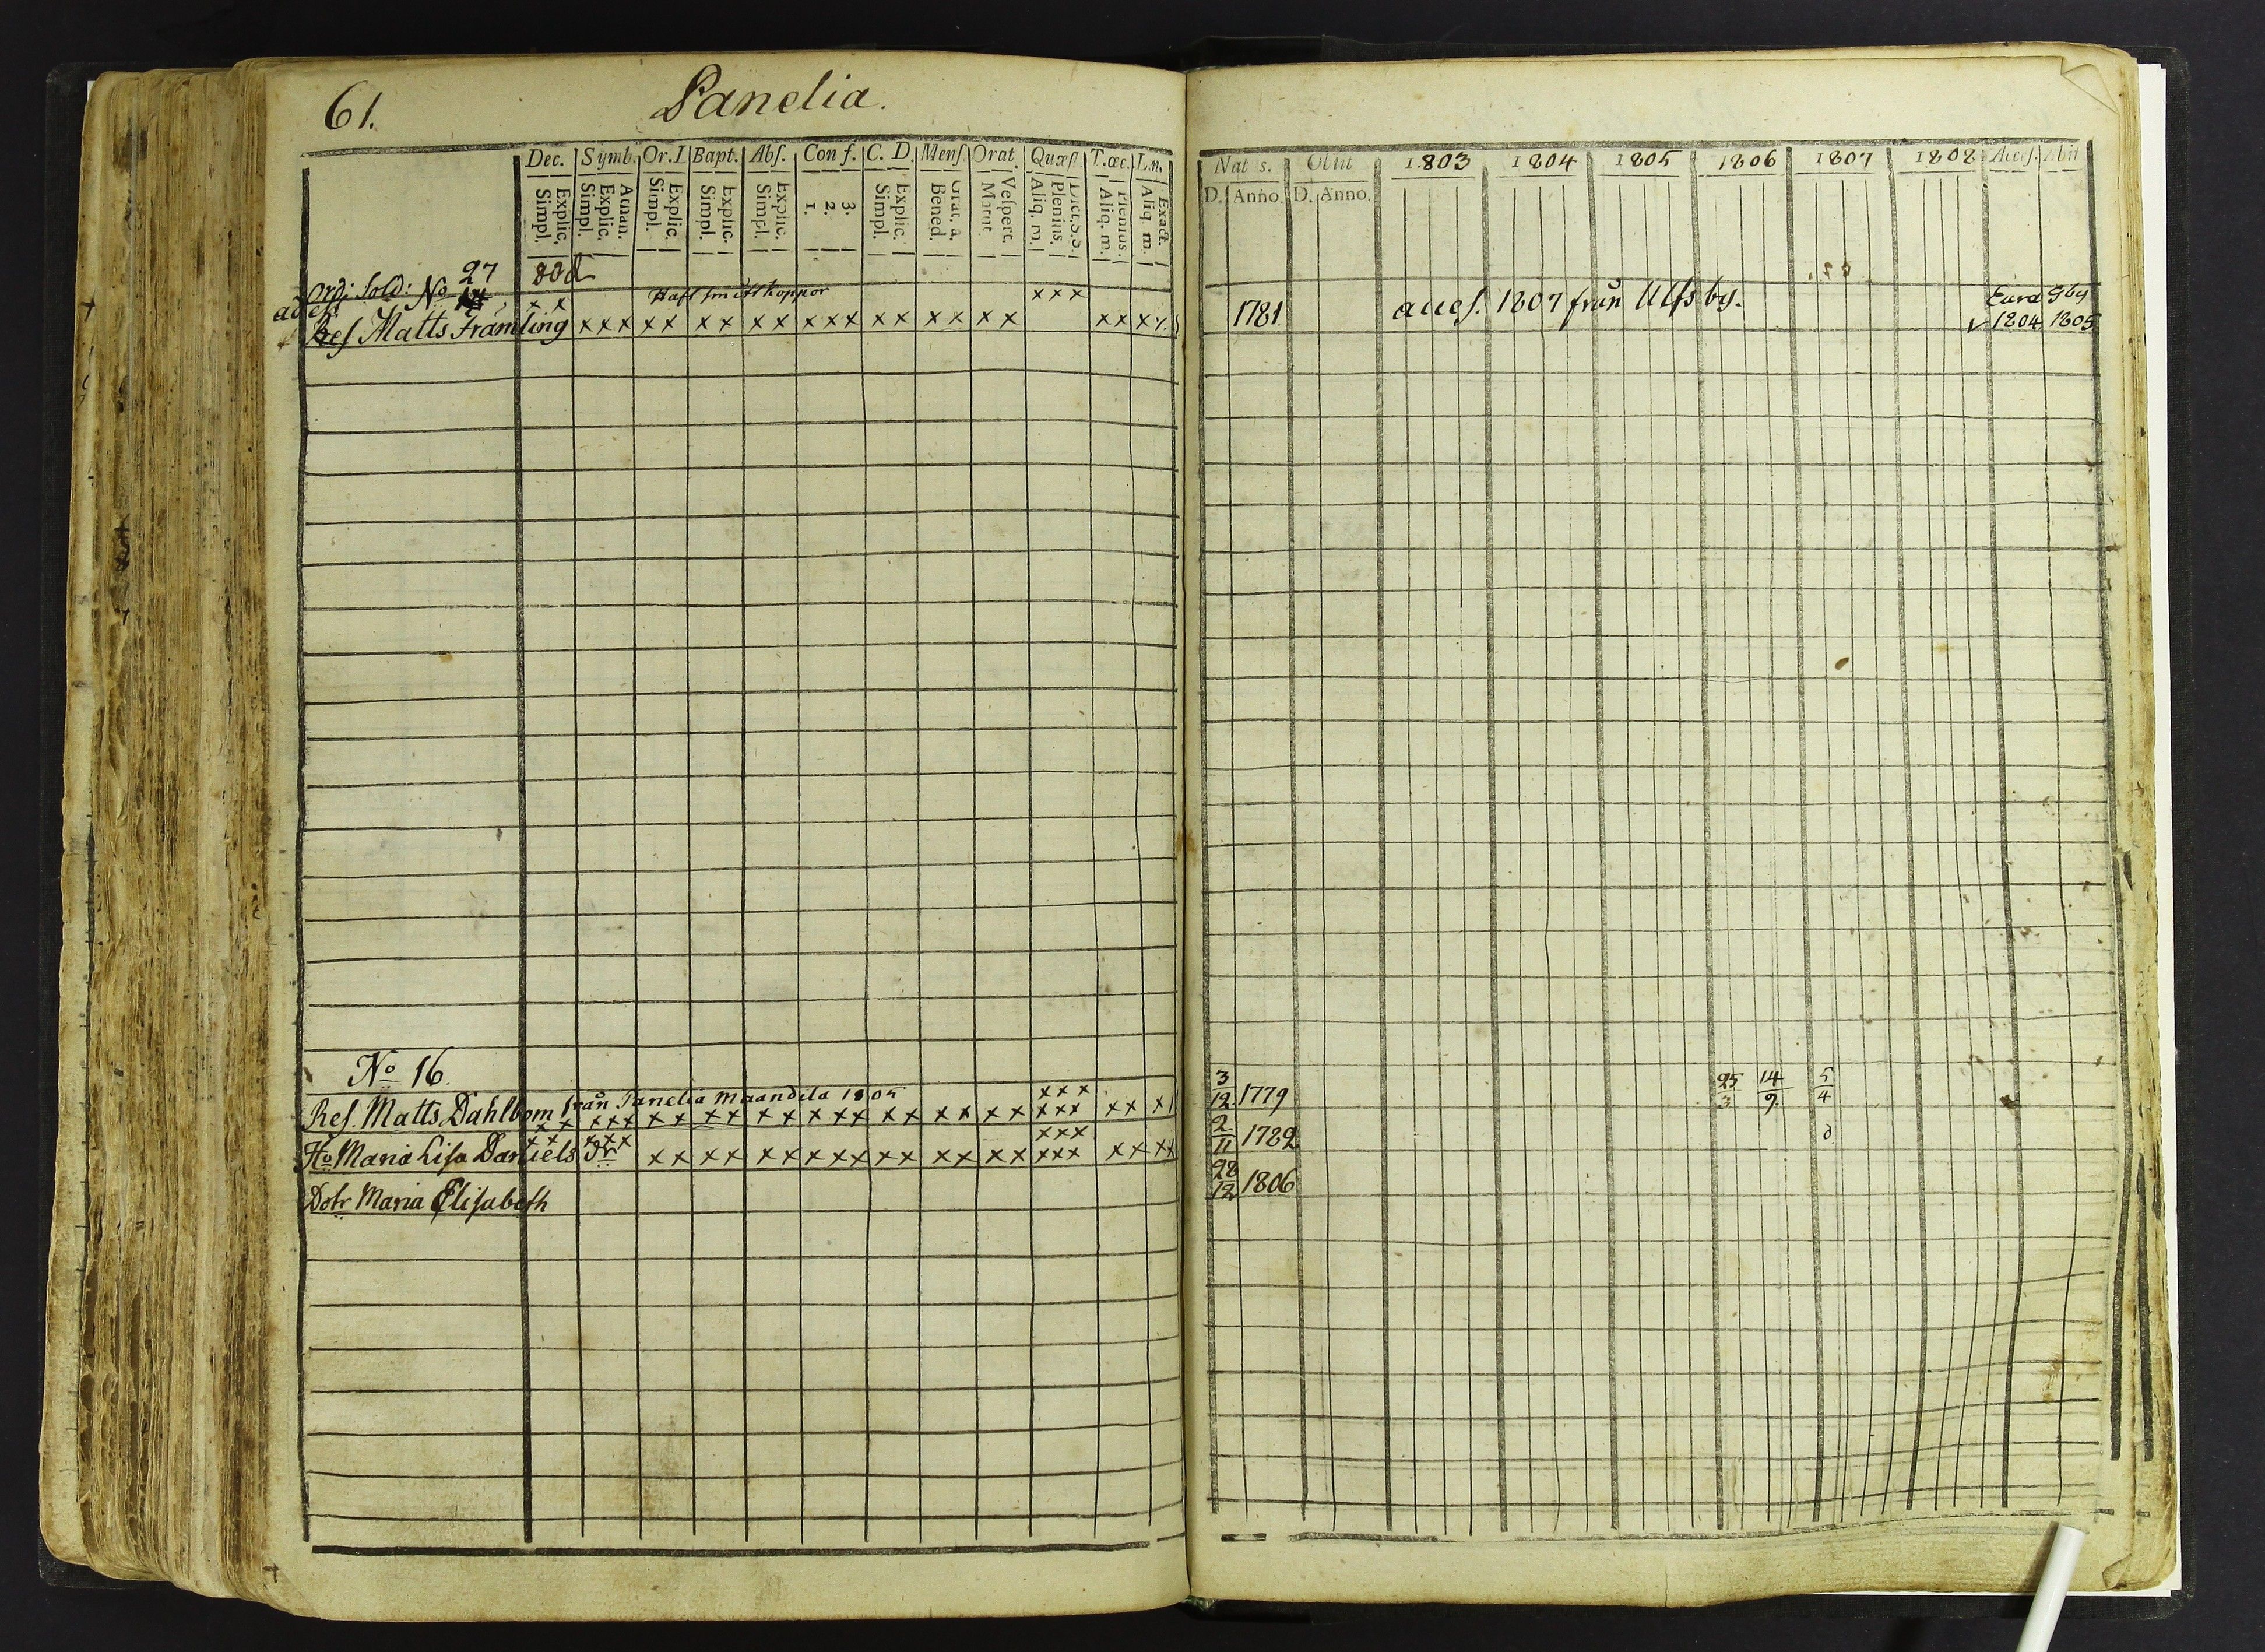 61. Panelia.
Dec. Symb. Or. D Bapt. Abs. Conf. C. D. Mens. Orat. Quæst. T. œc. L.m.
Explic. Simpl. Athan. Explic. Simpl. Explic. Simpl. Explic. Simpl. Explic. Simpl. 3. 2. 1. Explic. Simpl. Grat. a. Bened. Vespert. Matut. Dict.S.S. Plenius. Aliq. m. Plenius. Aliq. m. Exact. Aliq. m.
Nat s. Obiit 1803 1804 1805 1806 1807 1808 Access. Abit
D. Anno. D. Anno.
Ord: Sold: No 27 död
adest x x Haft små koppor x x x
Res Matts Främling x x x x x x x x x x x x x x x x x x x x x x x 1781 access. 1807 från Ulfsby. Eura 1804 1805
No 16
från Panelia Maandila 1805 x x x
Res. Matts Dahlbom x x x x x x x x x x x x x x x x x x x x x x x x x x x x 3/12 1779 25/3 14/9 5/4
x x x x x x x x
Hu Maria Lisa Daniels dr x x x x x x x x x x x x x x x x x x x x x x 2/11 1782
Dotr Maria Elisabeth 28/12 1806